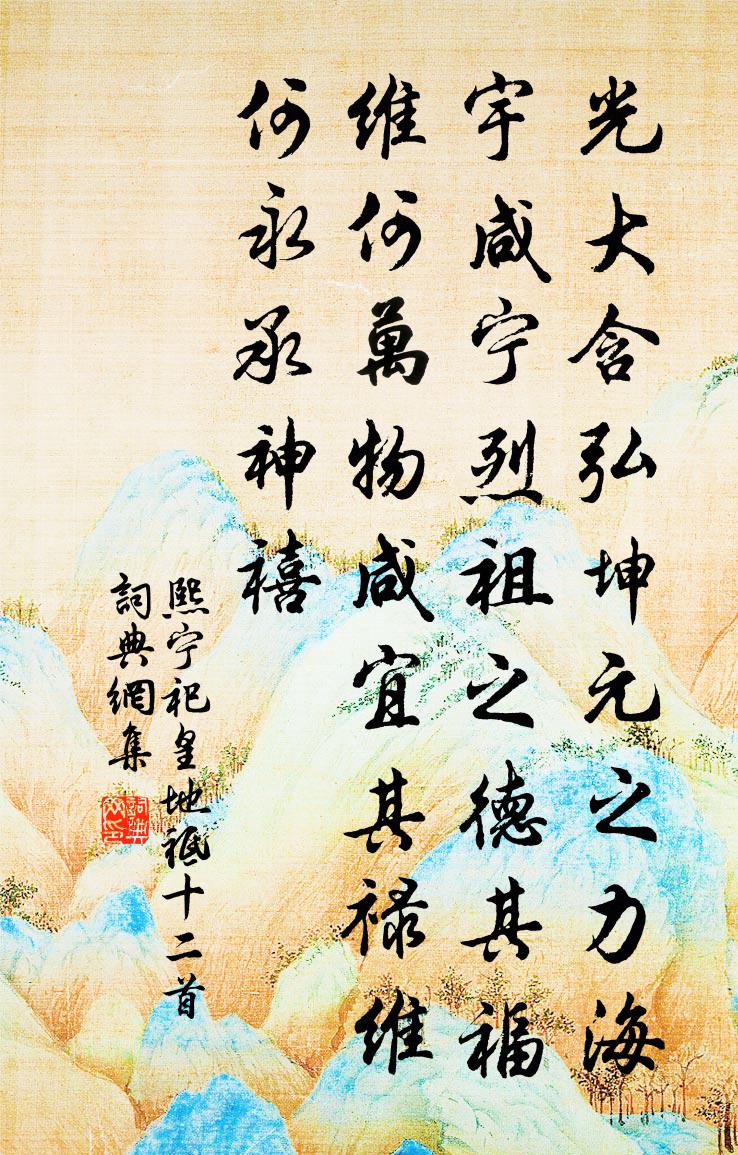 光大含弘坤元之力海
宇咸宁烈祖之德其福
維何萬物咸宜其禄維
何永承神禧
熙宁祀皇地祇十二首
詞典網集